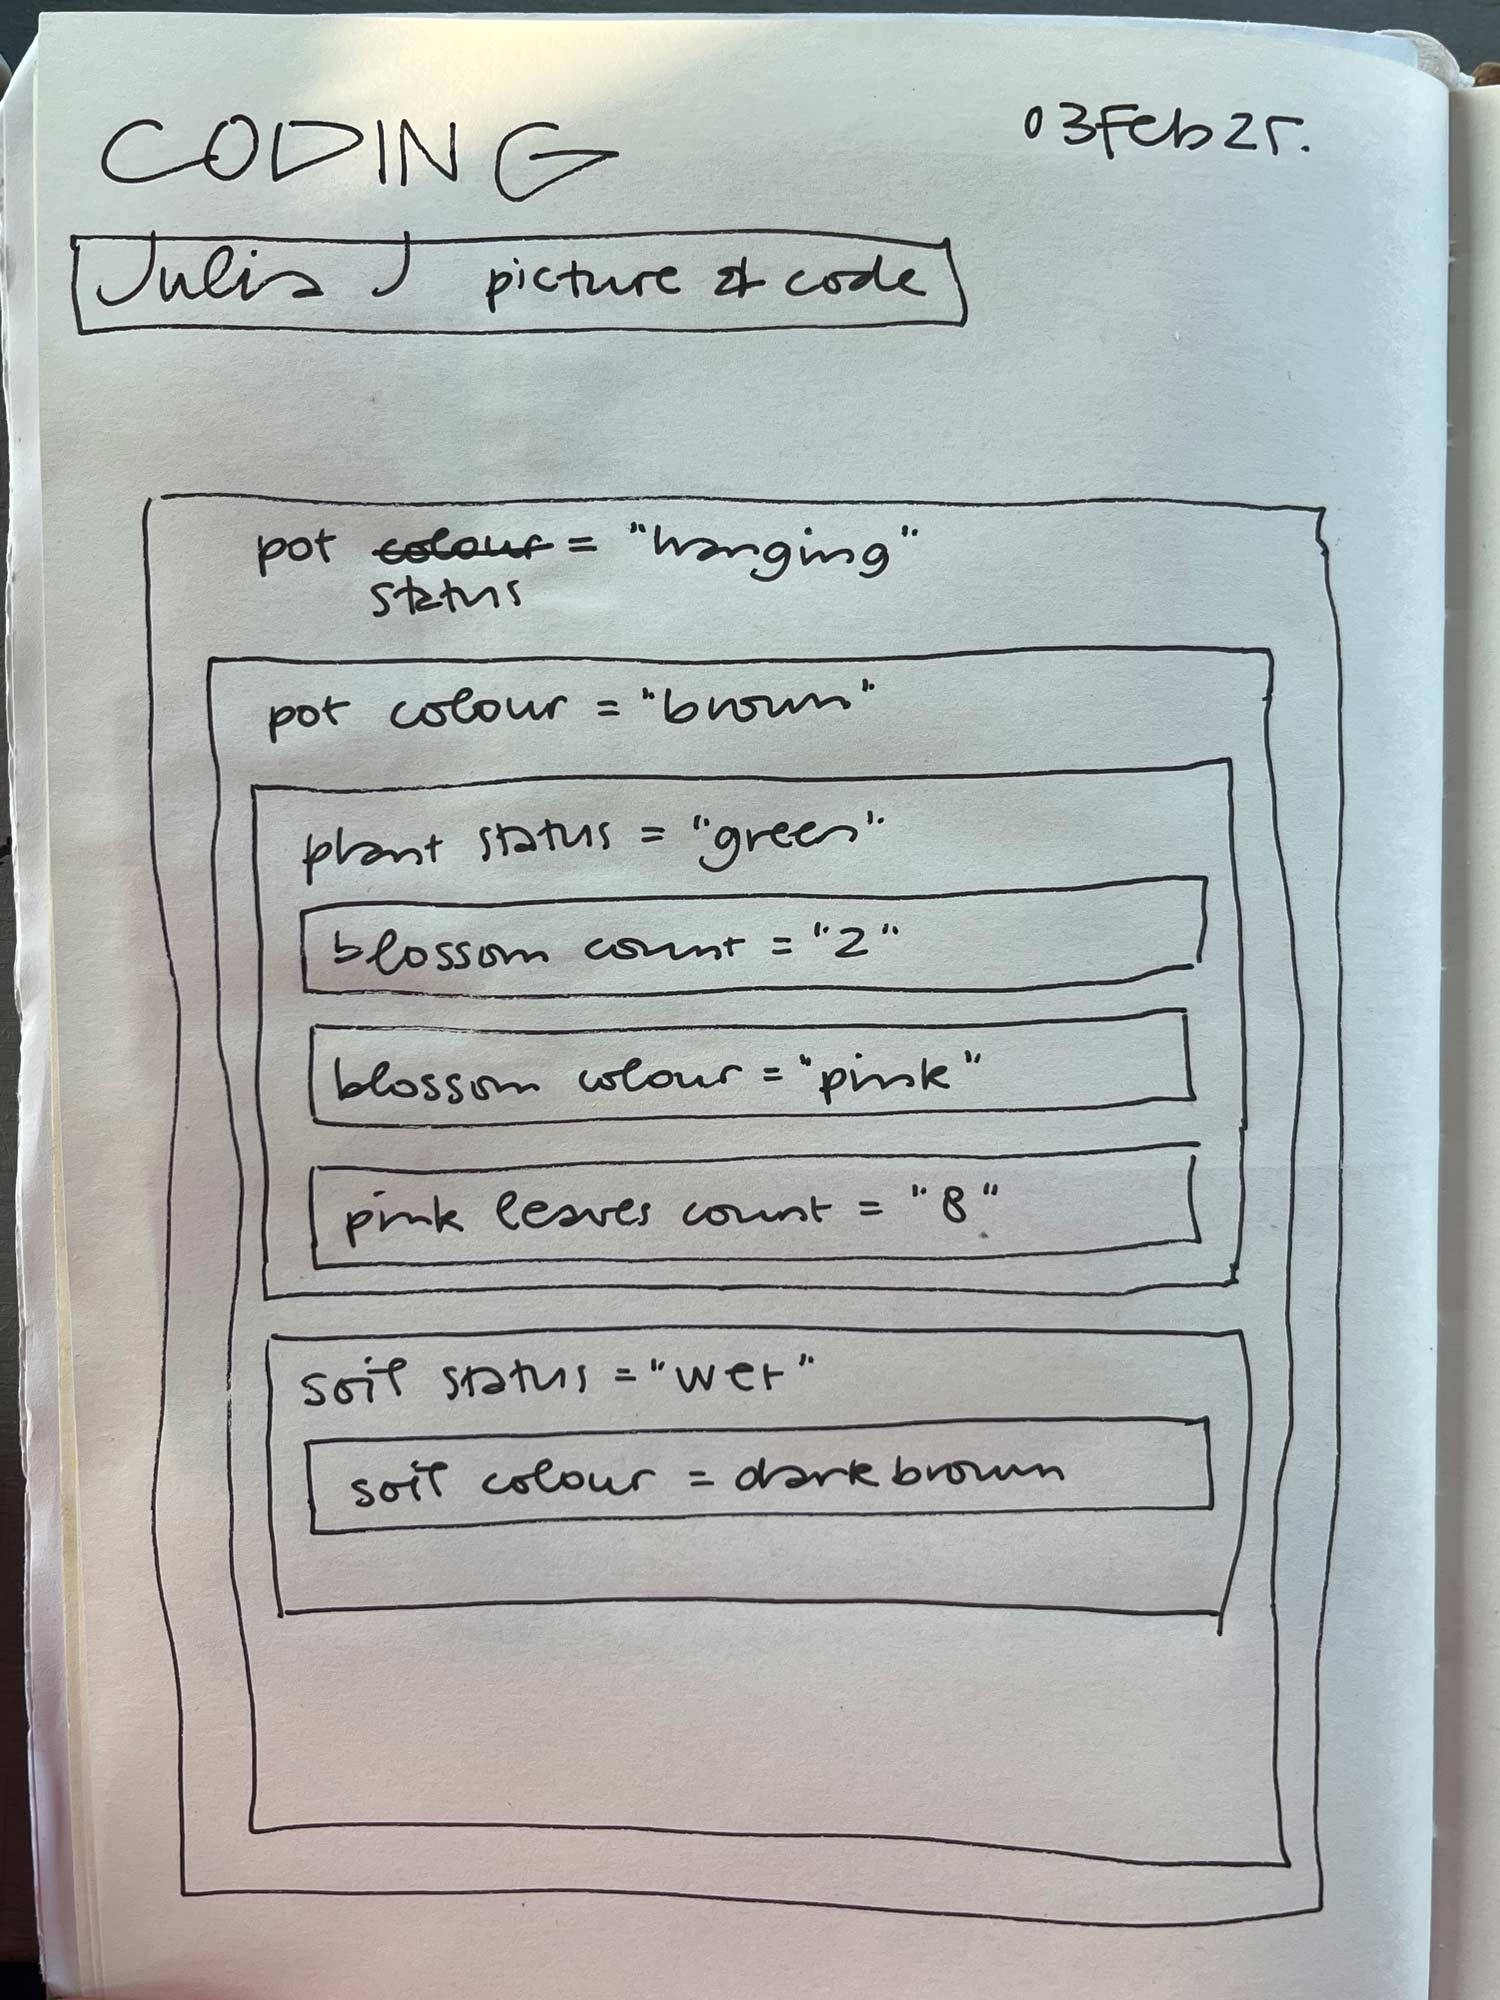 CODING
03Feb25.
Julia J picture & code
pot colour = "hanging"
status
pot colour = "brown"
plant status = "green"
blossom count = "2"
blossom colour = "pink"
pink leaves count = "8"
soil status = "wet"
soil colour = darkbrown